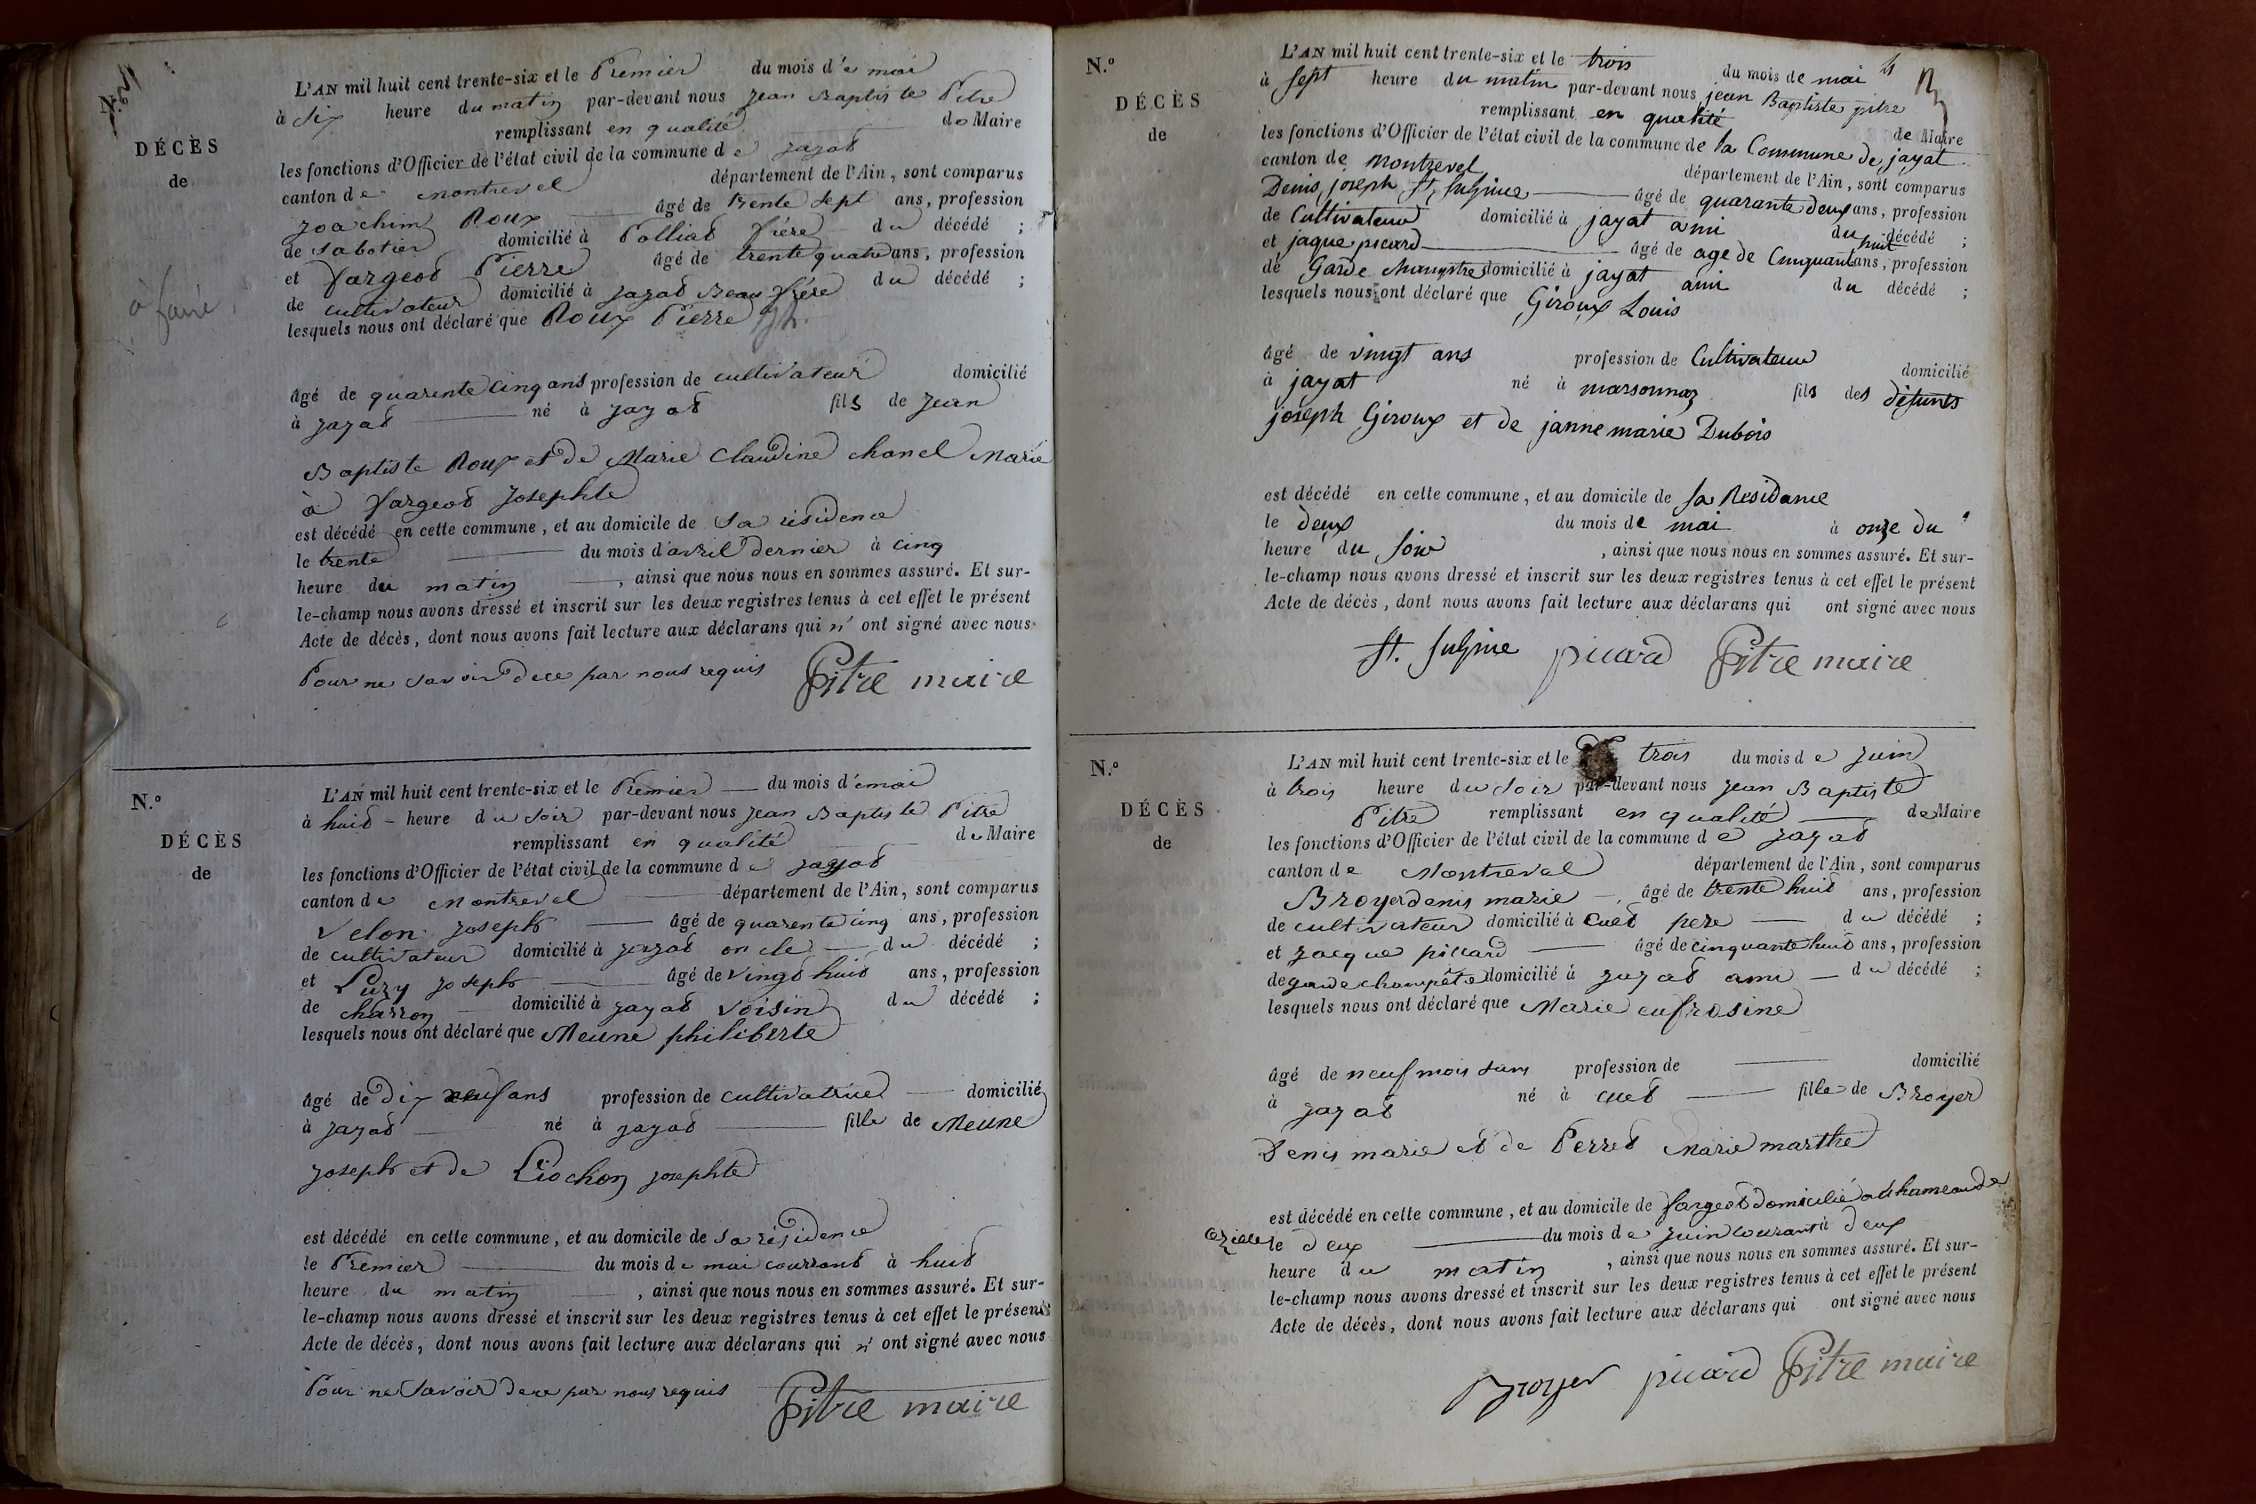 N.°
DÉCÈS
de
à faire
L'AN mil huit cent trente-six et le Premier du mois de mai
à Six heure du matin par-devant nous Jean Baptiste Pitre
remplissant en qualité de Maire
les fonctions d'Officier de l'état civil de la commune de Jayat
canton de Montrevel département de l'Ain, sont comparus
Joachim Roux âgé de trente sept ans, profession
de Sabotier domicilié à Polliat frére du décédé ;
et fargeot Pierre âgé de trente quatre ans, profession
de cultivateur domicilié à Jayat Beau frére du décédé ;
lesquels nous ont déclaré que Roux Pierre
âgé de quarente cinq ans profession de cultivateur domicilié
à Jayat né à Jayat fils de Jean
Baptiste Roux et de Marie Claudine chanel Marié
à fargeot Josephte
est décédé en cette commune, et au domicile de Sa résidence
le trente du mois d'avril dernier à cinq
heure du matin , ainsi que nous nous en sommes assuré. Et sur-
le-champ nous avons dressé et inscrit sur les deux registres tenus à cet effet le présent
Acte de décès, dont nous avons fait lecture aux déclarans qui n' ont signé avec nous
Pour ne savoir de ce par nous requis Pitre maire
N.°
DÉCÈS
de
L'AN mil huit cent trente-six et le Premier du mois de mai
à huit heure du soir par-devant nous Jean Baptiste Pitre
remplissant en qualité de Maire
les fonctions d'Officier de l'état civil de la commune de Jayat
canton de Montrevel département de l'Ain, sont comparus
Velon Joseph âgé de quarente cinq ans, profession
de cultivateur domicilié à Jayat oncle du décédé ;
et Puzy Joseph âgé de vingt huit ans, profession
de charron domicilié à Jayat voisin du décédé ;
lesquels nous ont déclaré que Meune philiberte
âgé de Dix neuf ans profession de cultivatrice domicilié
à Jayat né à Jayat fille de Meune
Joseph et de Liochon Josephte
est décédé en cette commune, et au domicile de Sa résidence
le Premier du mois de mai courrant à huit
heure du matin , ainsi que nous nous en sommes assuré. Et sur-
le-champ nous avons dressé et inscrit sur les deux registres tenus à cet effet le présent
Acte de décès, dont nous avons fait lecture aux déclarans qui n' ont signé avec nous
Pour ne savoir de ce par nous requis Pitre maire
N.°
DÉCÈS
de
L'AN mil huit cent trente-six et le trois du mois de mai
à sept heure du matin par-devant nous jean Baptiste pitre
remplissant en qualité de Maire
les fonctions d'Officier de l'état civil de la commune de la Commune de jayat
canton de Montrevel département de l'Ain, sont comparus
Denis joseph St. Sulpice âgé de quarante deux ans, profession
de Cultivateur domicilié à jayat ami du décédé ;
et jaque picard âgé de age de Cinquante huit ans, profession
de Garde Champetre domicilié à jayat ami du décédé ;
lesquels nous ont déclaré que Giroux Louis
âgé de vingt ans profession de Cultivateur domicilié
à jayat né à marsonnaz fils des défunts
joseph Giroux et de janne marie Dubois
est décédé en cette commune, et au domicile de sa Residance
le deux du mois de mai à onze du
heure du soir , ainsi que nous nous en sommes assuré. Et sur-
le-champ nous avons dressé et inscrit sur les deux registres tenus à cet effet le présent
Acte de décès, dont nous avons fait lecture aux déclarans qui ont signé avec nous
St. Sulpice picard Pitre maire
N.°
DÉCÈS
de
L'AN mil huit cent trente-six et le trois du mois de Juin
à trois heure du soir par-devant nous Jean Baptiste
Pitre remplissant en qualité de Maire
les fonctions d'Officier de l'état civil de la commune de Jayat
canton de Montreval département de l'Ain, sont comparus
Broyer denis marie âgé de trente huit ans, profession
de cultivateur domicilié à Cuet pere du décédé ;
et Jacque piccard âgé de cinquante huit ans, profession
de garde champête domicilié à Jayat ami du décédé ;
lesquels nous ont déclaré que Marie eufrosine
âgé de neuf mois sans profession de domicilié
à Jayat né à cuet fille de Broyer
Denis marie et de Perret Marie marthe
est décédé en cette commune, et au domicile de fargeot domicilié au hameau de
Cézille le deux du mois de Juin courant à deux
heure du matin , ainsi que nous nous en sommes assuré. Et sur-
le-champ nous avons dressé et inscrit sur les deux registres tenus à cet effet le présent
Acte de décès, dont nous avons fait lecture aux déclarans qui ont signé avec nous
Broyer picard Pitre maire